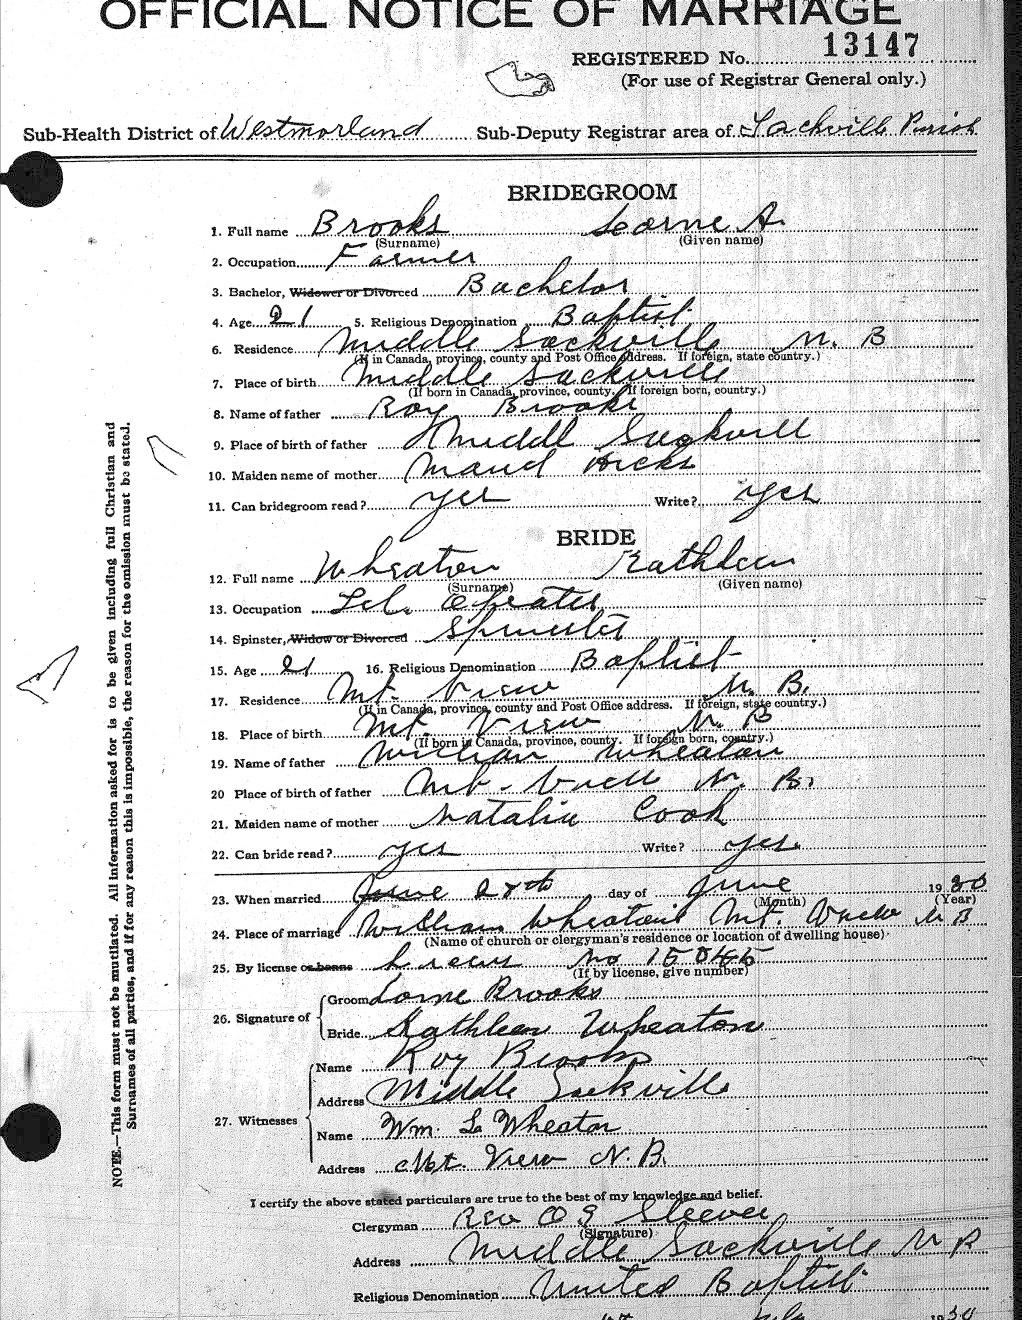 OFFICIAL NOTICE OF MARRIAGE
REGISTERED No. 13147
(For use of Registrar General only.)
Sub-Health District of Westmorland Sub-Deputy Registrar area of Sackville Parish
BRIDEGROOM
1. Full name Brooks Lorne A.
(Surname) (Given name)
2. Occupation Farmer
3. Bachelor, Widower or Divorced Bachelor
4. Age 21 5. Religious Denomination Baptist
6. Residence Middle Sackville N. B
(If in Canada, province, county and Post Office address. If foreign, state country.)
7. Place of birth Middle Sackville
(If born in Canada, province, county. If foreign born, country.)
8. Name of father Roy Brooks
9. Place of birth of father Middl Sackvill
10. Maiden name of mother Maud Hicks
11. Can bridegroom read? yes Write? yes
BRIDE
12. Full name Wheaton Kathleen
(Surname) (Given name)
13. Occupation Tel. Operator
14. Spinster, Widow or Divorced Spinster
15. Age 21 16. Religious Denomination Baptist
17. Residence Mt. View N. B.
(If in Canada, province, county and Post Office address. If foreign, state country.)
18. Place of birth Mt. View N. B
(If born in Canada, province, county. If foreign born, country.)
19. Name of father William Wheaton
20 Place of birth of father Mt. View N. B.
21. Maiden name of mother Natalie Cook
22. Can bride read? yes Write? yes.
23. When married June 28th day of June 1930
(Month) (Year)
24. Place of marriage William Wheaton's Mt. View N B
(Name of church or clergyman's residence or location of dwelling house)
25. By license or banns License No
(If by license, give number)
26. Signature of
Groom Lorne Brooks
Bride Kathleen Wheaton
27. Witnesses
Name Roy Brooks
Address Middle Sackville
Name Wm. L. Wheaton
Address Mt. View N. B.
I certify the above stated particulars are true to the best of my knowledge and belief.
Clergyman Rev O E Steeves
(Signature)
Address Middle Sackville N B
Religious Denomination United Baptist
July 1930
NOTE.—This form must not be mutilated. All information asked for is to be given including full Christian and
Surnames of all parties, and if for any reason this is impossible, the reason for the omission must be stated.